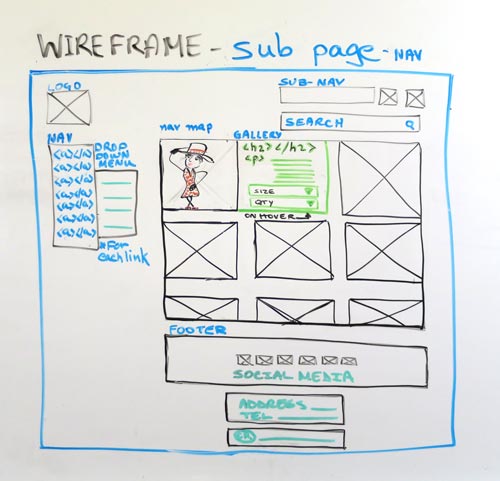 WIREFRAME - sub page - NAV
LOGO
SUB-NAV
SEARCH
NAV
DROP
DOWN
MENU
<a></a>
<a></a>
<a></a>
<a></a>
<a></a>
<a></a>
<a></a>
*For
each link
nav map
GALLERY
<h2> </h2>
<p>
SIZE
QTY
ON HOVER
FOOTER
SOCIAL MEDIA
ADDRESS
TEL